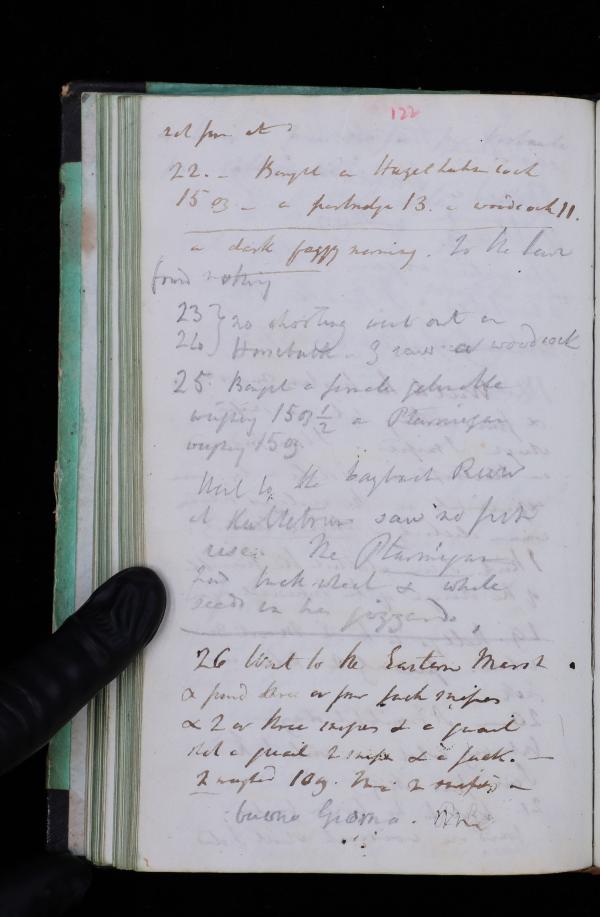 122
22. - Bought a Hazel hahn cock
15 oz - a partridge 13. a woodcock 11.
a dark foggy morning. To the
found nothing
23 } no shooting went out on
24 } Horseback - I saw a woodcock
25 Bought a female
weighing 15 oz 1/2 a Ptarmigan
weighing 15 oz
Went to the River
at saw no fish
rise. The Ptarmigan
had buck wheat & white
seeds in her gizzard.
26 Went to the Eastern Marsh.
& found three or four Jack snipes
& 2 or three snipes & a quail
shot a quail 2 snipe & a Jack. -
2 weighed 10 oz. 2 snipes
buona